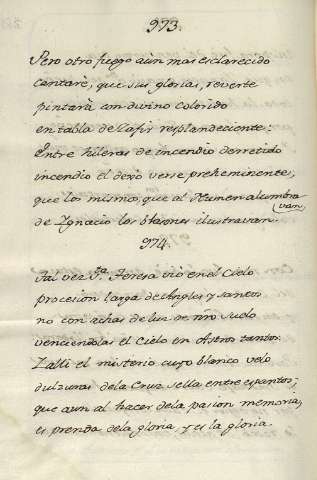 973.
Pero otro fuego aùn mas esclarecido
cantarè, que sus glorias, reverte
pintarà con divino colorido
en tabla de Zafir resplandeciente:
Entre hileras de incendio derretido
incendio el dexò verse preheminente,
que los mismos, que al Numen alumbra
van,
de Ignacio los blasones ilustravan.
974.
Tal vez Sta. Teresa viò en el Cielo
procesion larga de Angles y santos
no con achas de luz de nro suelo
venciendolas el Cielo en Astros tantos:
Zalli el misterio cuyo blanco velo
dulzuras de la Cruz sella entre espantos,
que aun al hacer de la pasion memoria,
es prenda de la gloria y es la gloria.